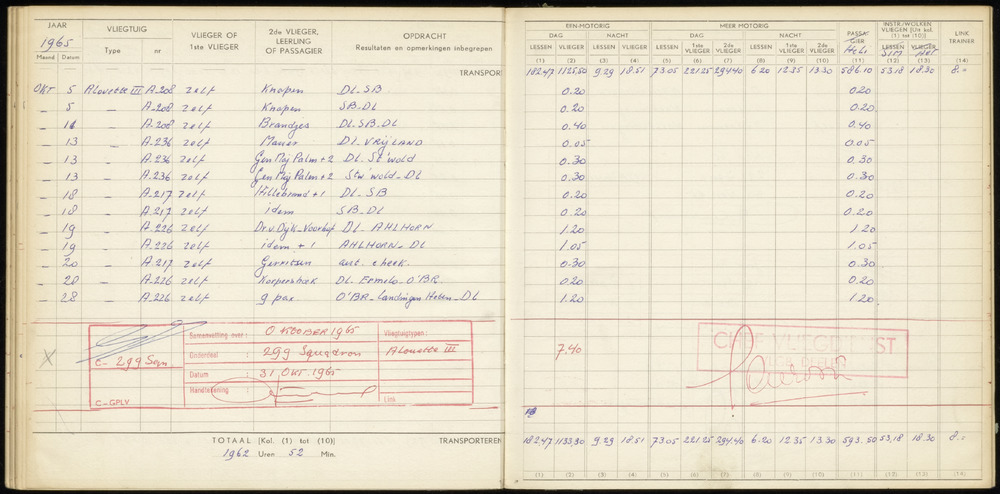 JAAR
1965
Maand Datum
VLIEGTUIG
Type nr
VLIEGER OF
1ste VLIEGER
2de VLIEGER,
LEERLING
OF PASSAGIER
OPDRACHT
Resultaten en opmerkingen inbegrepen
TRANSPORT
OKT 5 Alouette III A-208 zelf Knopen DL-SB
- 5 - A-208 zelf Knopen SB-DL
- 11 - A-208 zelf Brandjes DL-SB-DL
- 13 - A-236 zelf DL-VRIJLAND
- 13 - A-236 zelf Gen Maj Palm+2 DL-St'wold
- 13 - A-236 zelf Gen Maj Palm+2 Stw wold-DL
- 18 - A-217 zelf Hillebrand+1 DL-SB
- 18 - A-217 zelf idem SB-DL
- 19 - A-226 zelf Dr.v.Dijk-Voorhof DL-AHLHORN
- 19 - A-226 zelf idem + 1 AHLHORN-DL
- 20 - A-217 zelf Gerritsen aut. check.
- 28 - A-226 zelf DL Ermelo-O'BR.
- 28 - A-226 zelf 9 pax O'BR-landingen Heben-DL
C- 299 Sqn
C-GPLV
Samenvatting over : OKTOBER 1965
Onderdeel : 299 Squadron
Datum : 31 OKT. 1965
Handtekening :
Vliegtuigtypen :
Alouette III
Link
TOTAAL [Kol. (1) tot (10)] TRANSPORTEREN
1962 Uren 52 Min.
EEN-MOTORIG
DAG NACHT
LESSEN VLIEGER LESSEN VLIEGER
(1) (2) (3) (4)
MEER MOTORIG
DAG NACHT
LESSEN 1ste VLIEGER 2de VLIEGER LESSEN 1ste VLIEGER 2de VLIEGER
(5) (6) (7) (8) (9) (10)
PASSAGIER
Heli
(11)
INSTR./WOLKEN
VLIEGEN [Uit kol.
(1) tot (10)]
LESSEN VLIEGER
SIM Act
(12) (13)
LINK
TRAINER
(14)
182.47 1125.50 9.29 18.51 73.05 221.25 294.40 6.20 12.35 13.30 586.10 53.18 18.30 8.=
0.20 0.20
0.20 0.20
0.40 0.40
0.05 0.05
0.30 0.30
0.30 0.30
0.20 0.20
0.20 0.20
1.20 1.20
1.05 1.05
0.30 0.30
0.20 0.20
1.20 1.20
7.40
CHEF VLIEGDIENST
182.47 1133.30 9.29 18.51 73.05 221.25 294.40 6.20 12.35 13.30 593.50 53.18 18.30 8.=
(1) (2) (3) (4) (5) (6) (7) (8) (9) (10) (11) (12) (13) (14)